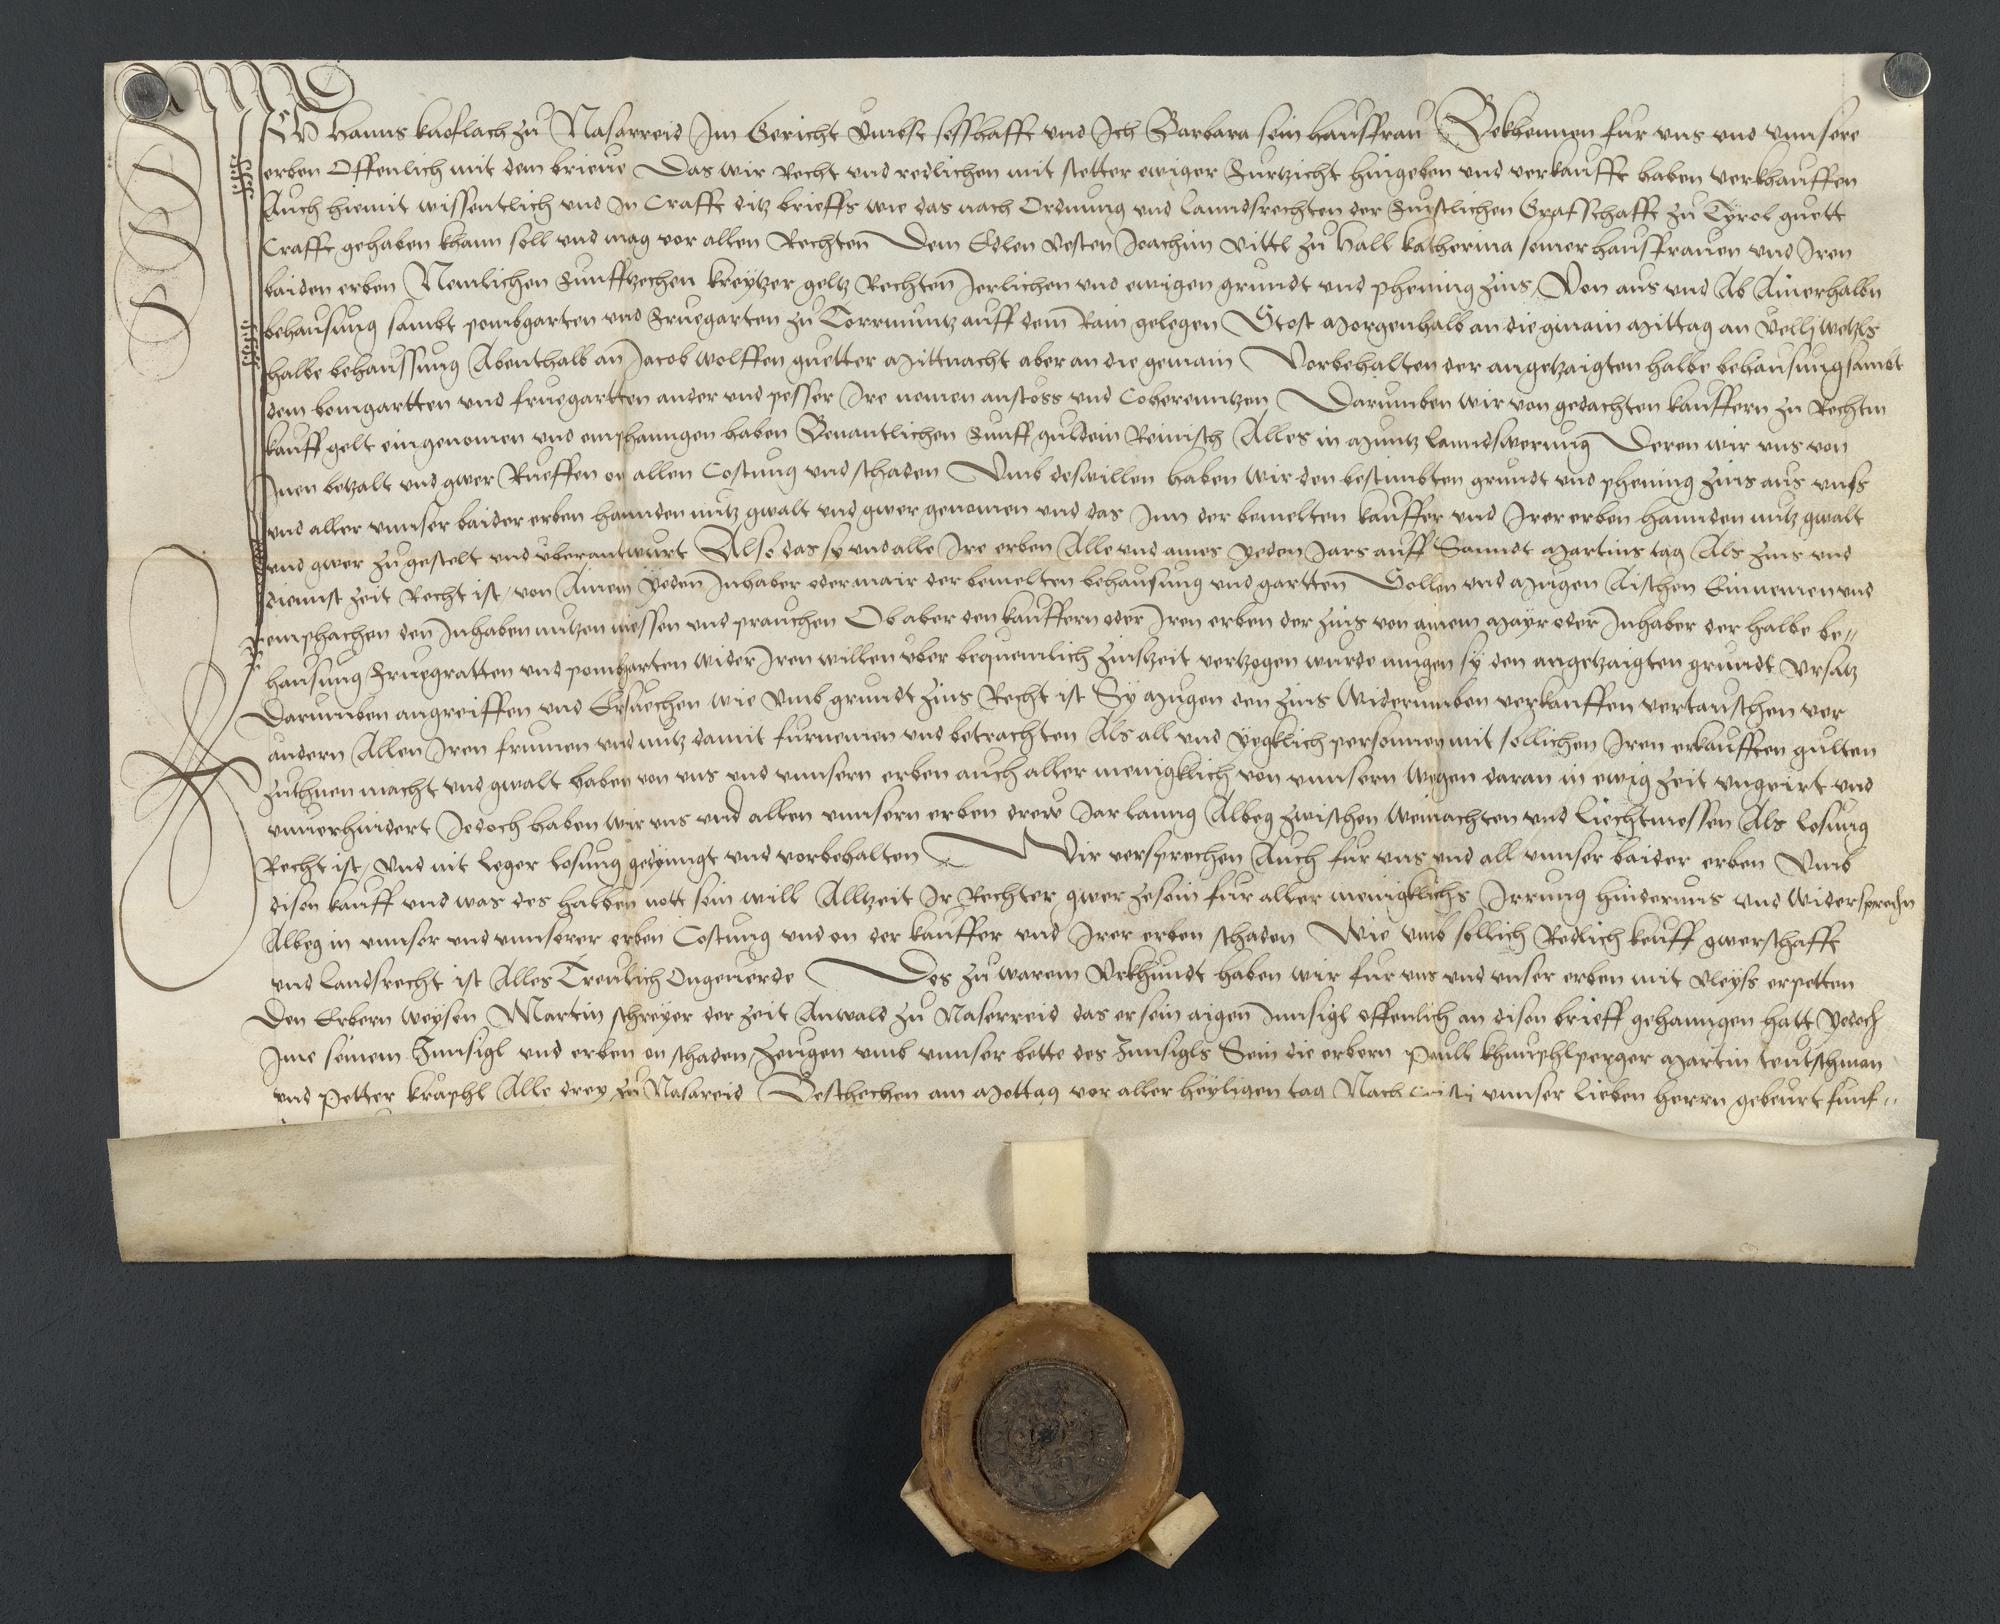 Wir Hanns kaoflach zu Nasarreid Im Gericht Ümbst sesshafft vnd Ich Barbara sein hausfrau Bekhennen fur vns vnd vnnsere
erben Offenlich mit dem brieue Das wir Recht vnd redlichen mit stetter ewiger Furtzicht hingeben vnd verkaufft haben verkhauffen
Auch hiemit wissentlich vnd In Crafft ditz brieffs wie das nach Ordnung vnd lanndsrechten der Furstlichen Grafschafft zu Tyrol guett
Crafft gehaben khann soll vnd mag vor allen Rechten Dem Edlen Vesten Joachim Vittl zu Hall katherina seiner hausfrauen vnd Iren
baiden erben Nemlichen Funffzechen kreytzer geltz Rechten Jerlichen vnd ewigen grundt vnd phening Zins Von aus vnd Ab Ainer halbn
behausung sambt pombgarten vnd Fruegarten zu Torrmuntz auff dem Rain gelegen Stost Morgenhalb an die gmain Mittag an Vellj wetzls
halbe behaussung Abenthalb an Jacob wolffen guetter Mittnacht aber an die gemain Vorbehalten der angetzaigten halbe behausung sambt
dem bomgartten vnd fruegartten ander vnd pesser Ire nemen anstoss vnd Coherenntzen Darumben wir von gedachten kauffern zu Rechtm
kauff gelt eingenomen vnd emphanngen haben Benantlichen Funff guldein Reinisch Alles in Muntz lanndswerung Deren wir vns von
Inen betzalt vnd gwer Rueffen on allen Costung vnd schaden Vmb deswillen haben wir den bestimbten grundt vnd phening Zins aus vnss
vnd aller vnnser baider erben hannden nutz gwalt vnd gwer genomen vnd das Inn der bemelten kauffer vnd Irer erben hannden nutz gwalt
vnd gwer zugestelt vnd vberantwurt Also das sy vnd alle Ire erben Alle vnd aines yeden Jars auff Sanndt Martins tag Als Zins vnd
diennst Zeit Recht ist von Ainem Yeden Inhaber oder mair der bemelten behausung vnd gartten Sollen vnd Mugen Aischen Einnemen vnd
emphachen den Inhaben nutzen niessen vnd prauchen Ob aber den kauffern oder Iren erben der Zins von ainem Mayr oder Inhaber der halbe be-
hausung Fruegratten vnd pombgarten wider Iren willen vber bequemlich Zinszeit vertzogen wurde mugen sy den angetzaigten grundt vrsatz
Darumben angreiffen vnd Ersuechen wie Vmb grundt Zins Recht ist Sy Mugen den Zins Widerumben verkauffen vertauschen ver
andern Allen Iren frumen vnd nutz damit furnemen vnd betrachten Als all vnd yegklich personnen mit sollichen Iren erkaufften gulten
Zuthuen macht vnd gwalt haben von vns vnd vnnsern erben auch aller menigklich von vnnsern Wegen daran in ewig Zeit vngeirt vnd
vnuerhindert Jedoch haben wir vns vnd allen vnnsern erben drew Jar lanng Albeg Zwischen Weinachten vnd Liechtmessen Als Losung
Recht ist vnd nit leger losung gedynngt vnd vorbehalten Wir versprechen Auch fur vns vnd all vnnser baider erben Vmb
disen kauff vnd was des halben nott sein will Alltzeit Ir Rechter gwer zesein fur aller menigklichs Irrung hindernus vnd widersprechn
Albeg in vnnser vnd vnnserer erben Costung vnd on der kauffer vnd Irer erben schaden Wie vmb sollich Redlich keuff gwerschafft
vnd landsrecht ist Alles Treulich Ongeuerde Des zu warem Vrkhundt haben wir fur vns vnd vnser erben mit vleyss erpetten
Den Erbern weysen Martin schreyer der Zeit Anwald zu Naserreid das er sein aigen Innsigl offenlich an disen brieff gehanngen hatt Yedoch
Ime seinem Innsigl vnd erben on schaden Zeugen vmb vnnser bette des Innsigls Sein die erbern Paull khnuphlperger Martin teutschman
vnd Petter kraphl Alle drey zu Nasareid Beschechen am Mottag vor aller heyligen tag Nach Cristj vnnser lieben herrn geburt funf-